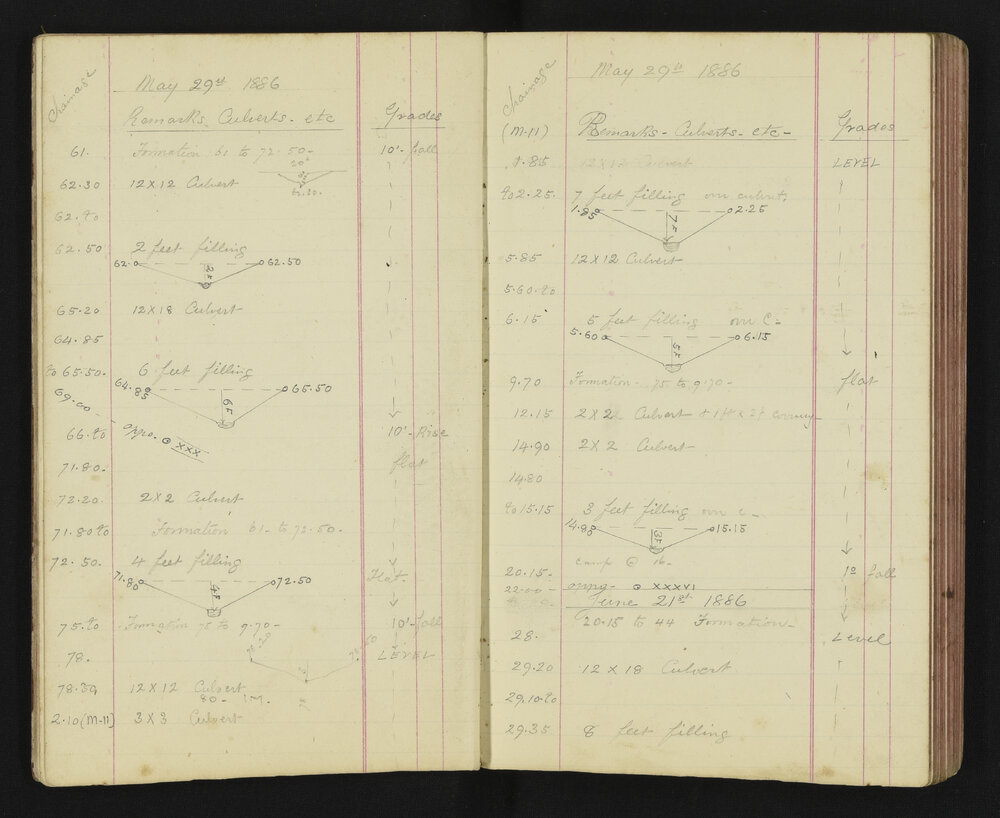 Chainage
May 29th 1886
Remarks Culverts - etc Grades
61. Formation 61 to 72.50- 10'- fall
62.30 12X12 Culvert
62.to
62.50 2 feet filling
62.0 2F 62.50
65.20 12X18 Culvert
64.85
to 65.50. 6 feet filling
64.85 6F 65.50
69.00
66.to oppo. XXX 10'- Rise
71.80. flat
72.20. 2X2 Culvert
71.80to Formation 61- to 72.50-
72.50. 4 feet filling
71.80 4F 72.50 Flat.
75.to Formation 75 to 9.70- 10'- fall
78. LEVEL
78.30 12 X 12 Culvert
80- 1-M.
2.10(M-11) 3X3 Culvert
Chainage
May 29th 1886
(M-11) Remarks- Culverts- etc- Grades
1.85 12X12 Culvert LEVEL
to2.25. 7 feet filling on culvert
1.85 7F 2.25
5.85 12X12 Culvert
5.60.to
6.15 5 feet filling on C-
5.60 5F 6.15
9.70 Formation- 75 to 9.70- flat
12.15 2X2 Culvert
14.90 2X2 Culvert
14.80
to15.15 3 feet filling on c-
3F 15.15
20.15- camp @ 16- fall
22.00- oppg- XXXVI
June 21st 1886
20.15 to 44 Formation-
28. Level
29.20 12 X 18 Culvert
29.10.to
29.35 8 feet filling